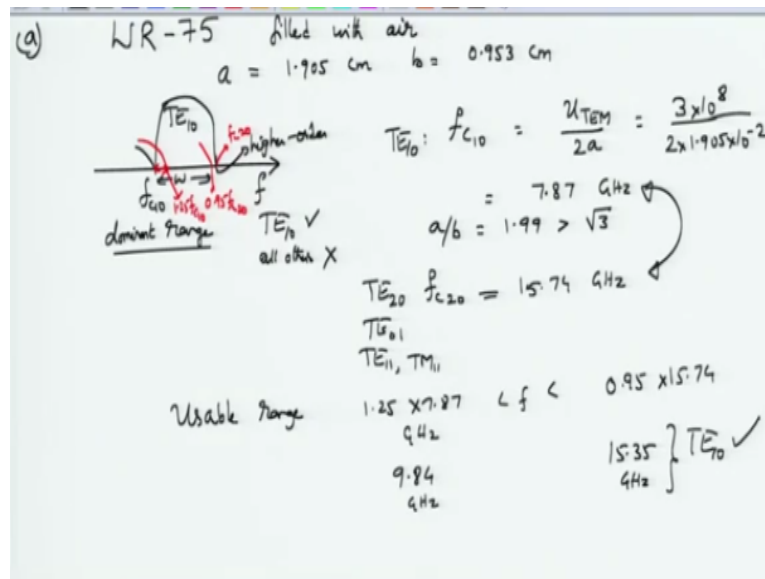 (a) WR-75 filled with air
a = 1.905 cm b = 0.953 cm
TE10
fc20
higher-order
fc10 ← w → f
1.25fc10 0.95fc20
dominant range
TE10 ✓
all other X
TE10: fc10 = uTEM / 2a = 3x10^8 / 2x1.905x10^-2
= 7.87 GHz
a/b = 1.99 > √3
TE20 fc20 = 15.74 GHz
TE01
TE11, TM11
Usable range 1.25 x7.87 GHz < f < 0.95 x15.74
9.84 GHz 15.35 GHz } TE10 ✓